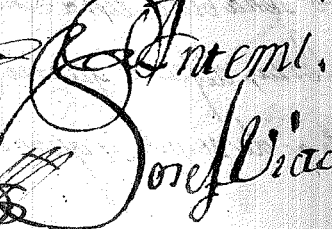 Ante mi.
Josef Viac